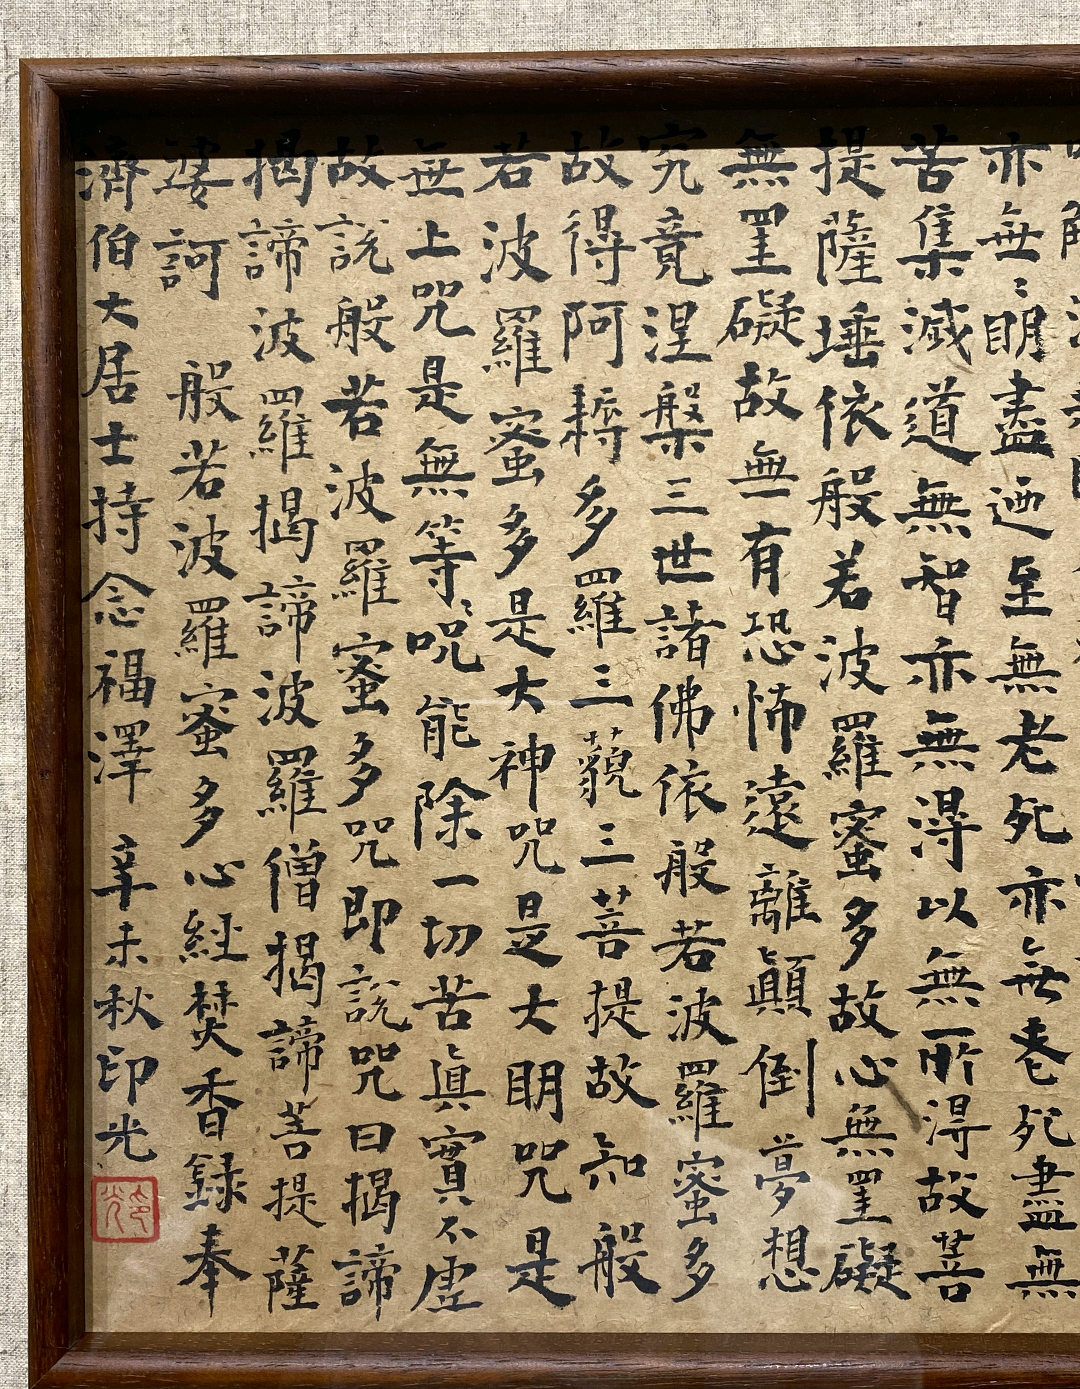 亦無〻明盡迺至無老死亦無老死盡無
苦集滅道無智亦無得以無所得故菩
提薩埵依般若波羅蜜多故心無罣礙
無罣礙故無有恐怖遠離顛倒夢想
究竟涅槃三世諸佛依般若波羅蜜多
故得阿耨多羅三藐三菩提故知般
若波羅蜜多是大神咒是大明咒是
無上咒是無等〻咒能除一切苦真實不虛
故說般若波羅蜜多咒即說咒曰揭諦
揭諦波羅揭諦波羅僧揭諦菩提薩
婆訶 般若波羅蜜多心經焚香錄奉
濟伯大居士持念福澤 辛未秋印光